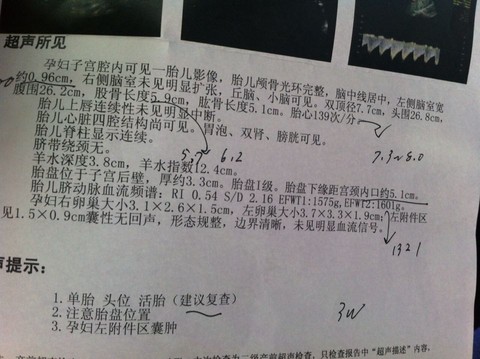 超声所见
孕妇子宫腔内可见一胎儿影像，胎儿颅骨光环完整，脑中线居中，左侧脑室宽
约0.96cm，右侧脑室未见明显扩张，丘脑、小脑可见。双顶径7.7cm，头围26.8cm，
腹围26.2cm，股骨长度5.9cm，肱骨长度5.1cm。胎心139次/分。
胎儿上唇连续性未见明显中断。
胎儿心脏四腔结构尚可见。胃泡、双肾、膀胱可见。
胎儿脊柱显示连续。
脐带绕颈无。
5.7 6.2
7.3~8.0
羊水深度3.8cm，羊水指数12.4cm。
胎盘位于子宫后壁，厚约3.3cm。胎盘I级。胎盘下缘距宫颈内口约5.1cm。
胎儿脐动脉血流频谱：RI 0.54 S/D 2.16 EFWT1:1575g,EFWT2:1601g。
孕妇右卵巢大小3.1×2.6×1.5cm，左卵巢大小3.7×3.3×1.9cm；左附件区
见1.5×0.9cm囊性无回声，形态规整，边界清晰，未见明显血流信号。
1321
声提示：
1. 单胎 头位 活胎（建议复查）
2. 注意胎盘位置
3. 孕妇左附件区囊肿
3W